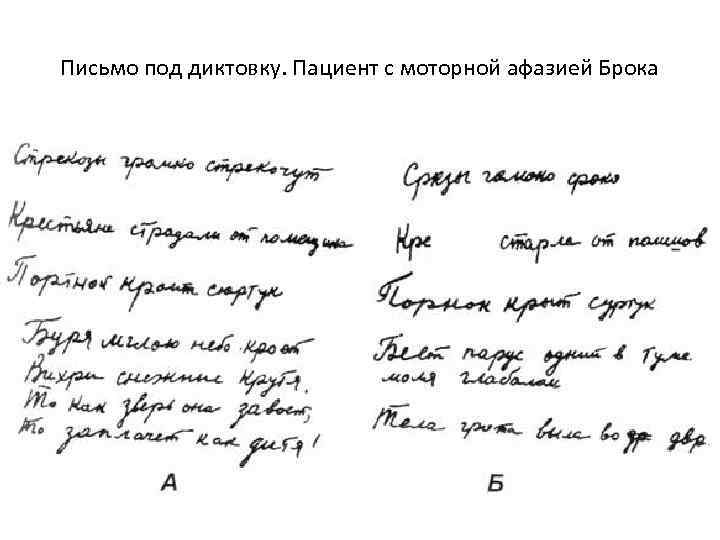 Письмо под диктовку. Пациент с моторной афазией Брока
Стрекозы грамко стрекочут
Крестьяне страдали от помещика
Портной кроит сюртук
Буря мглою небо кроет
Вихри снежние крутя.
То как зверь она завоет,
То заплачет как дитя!
А
Сркзы гамоно сроко
Кре старле от пошшов
Порнон крыт суртук
Бест парус однии в туме
моля глабалом
Тела грота выла во др двр
Б